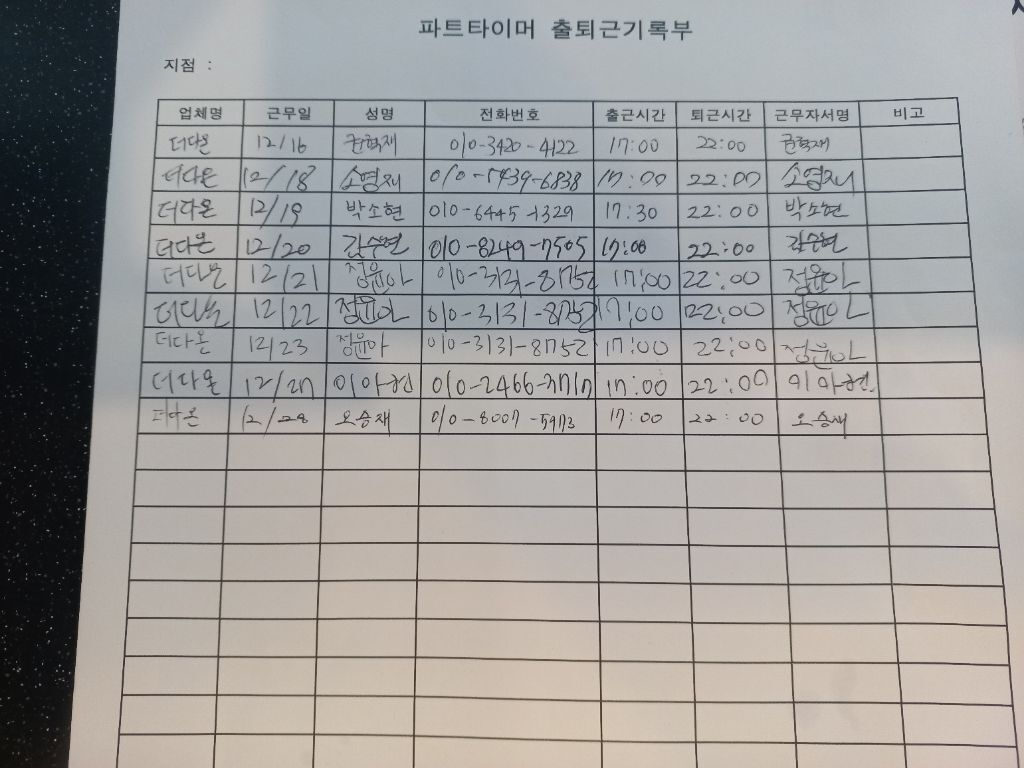 파트타이머 출퇴근기록부
지점 :
업체명 근무일 성명 전화번호 출근시간 퇴근시간 근무자서명 비고
더다온 12/16 권혁재 010-3420-4122 17:00 22:00 권혁재
더다온 12/18 소영재 010-5439-6838 17:00 22:00 소영재
더다온 12/19 박소현 010-6445-1329 17:30 22:00 박소현
더다온 12/20 김수현 010-8249-7505 17:00 22:00 김수현
더다온 12/21 정윤아 010-3131-8752 17:00 22:00 정윤아
더다온 12/22 정윤아 010-3131-8752 17:00 22:00 정윤아
더다온 12/23 정윤아 010-3131-8752 17:00 22:00 정윤아
더다온 12/27 이아현 010-2466-3717 17:00 22:00 이아현
더다온 12/28 오승재 010-8007-5973 17:00 22:00 오승재